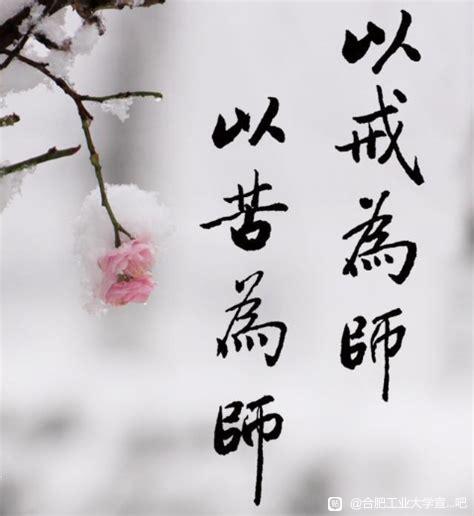 以戒為師
以苦為師
@合肥工业大学宣...吧